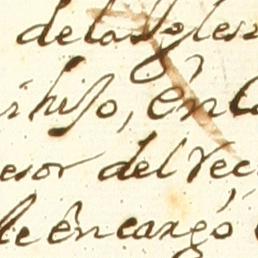 de la Yglesi
hijo, en l
esor del rec
le encargó